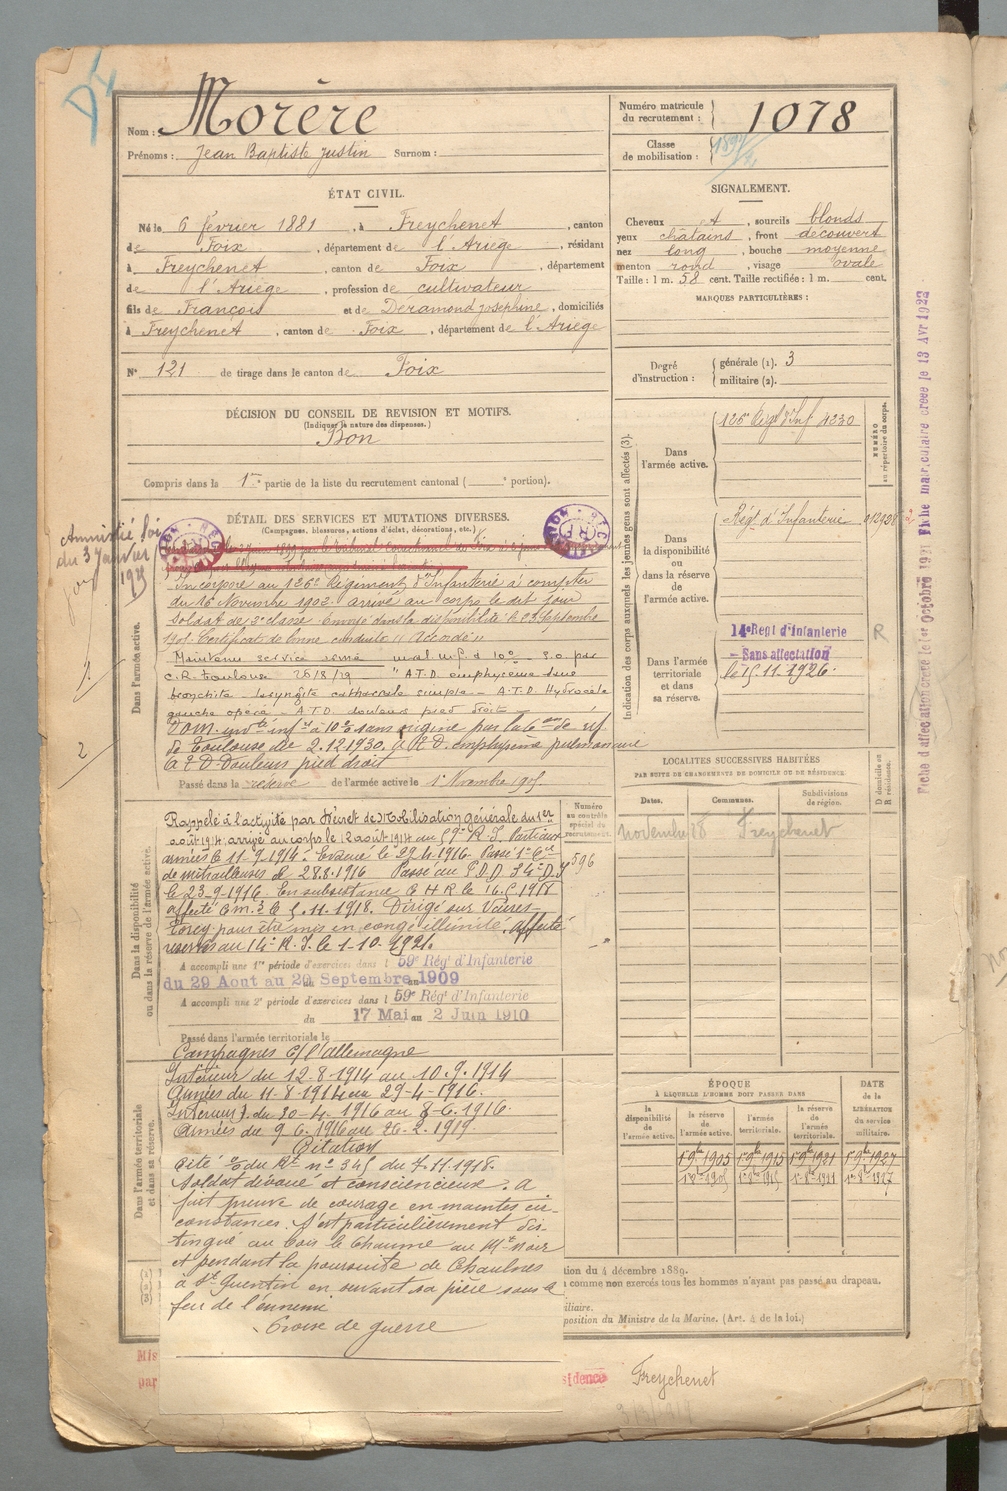 Nom : Morère
Prénoms : Jean Baptiste Justin Surnom :
Numéro matricule du recrutement : 1078
Classe de mobilisation :
ÉTAT CIVIL.
Né le 6 février 1881, à Freychenet, canton
de Foix, département de l'Ariège, résidant
à Freychenet, canton de Foix, département
de l'Ariège, profession de cultivateur
fils de François et de Déramond Joséphine, domiciliés
à Freychenet, canton de Foix, département de l'Ariège
N° 121 de tirage dans le canton de Foix
SIGNALEMENT.
Cheveux et, sourcils blonds
yeux châtains, front découvert
nez long, bouche moyenne
menton rond, visage ovale
Taille : 1 m. 58 cent. Taille rectifiée : 1 m. cent.
MARQUES PARTICULIÈRES :
Degré d'instruction : générale (1). 3
militaire (2).
DÉCISION DU CONSEIL DE REVISION ET MOTIFS.
(Indiquer la nature des dispenses.)
Bon
Compris dans la 1re partie de la liste du recrutement cantonal ( portion).
DÉTAIL DES SERVICES ET MUTATIONS DIVERSES.
(Campagnes, blessures, actions d'éclat, décorations, etc.)
Amnistié loi
du 3 Janvier
1925
Dans l'armée active.
Incorporé au 126e Régiment d'Infanterie à compter
du 16 Novembre 1902. arrivé au corps le dit jour
Soldat de 2e classe. Envoyé dans la disponibilité le 23 Septembre
1905. Certificat de bonne conduite "Accordé"
Maintenu service armé
C.R. Toulouse A.T.D. emphysème
bronchite - laryngite catharrale simple - A.T.D. Hydrocèle
gauche opéré - A.T.D. douleurs pied droit -
sans origine par la
de Toulouse du 2.12.1930. emphysème pulmonaire
Douleurs pied droit
Passé dans la réserve de l'armée active le 1er Novembre 1905.
Dans la disponibilité ou dans la réserve de l'armée active.
Rappelé à l'activité par Décret de Mobilisation générale du 1er
août 1914 arrivé au corps le 12 août 1914 au 59e R.I. Parti aux
armées le 11-9-1914. Evacué le 29.4.1916. Passé 1e Cie
de mitrailleuses le 28.8.1916 Passé au
le 23-9-1916. En subsistance
affecté le 5.11.1918. Dirigé sur
mis en congé illimité. affecté
réserves au 14e R.I. le 1-10-1921.
A accompli une 1re période d'exercices dans l 59e Rég' d'Infanterie
du 29 Aout au 20 Septembre 1909
A accompli une 2e période d'exercices dans l 59e Rég' d'Infanterie
du 17 Mai au 2 Juin 1910
Passé dans l'armée territoriale le
Numéro au contrôle spécial du recrutement.
596
Campagnes c/ l'allemagne
Intérieur du 12-8-1914 au 10.9.1914
Armées du 11-8-1914 au 29-4-1916.
Intérieur du 30-4-1916 au 8-6-1916.
Armées du 9-6-1916 au 26-2-1919.
Dans l'armée territoriale et dans sa réserve.
Citation
Cité du Rt n° 345 du 7.11.1918.
Soldat dévoué et consciencieux. A
fait preuve de courage en maintes cir-
constances. S'est particulièrement dis-
tingué au bois le Chaume au Mt noir
et pendant la poursuite de Chaulnes
à St Quentin en suivant sa pièce sous le
feu de l'ennemi
Croix de guerre
Indication des corps auxquels les jeunes gens sont affectés (3).
NUMÉRO au répertoire du corps.
Dans l'armée active.
126e Régt d'Inf 4230
Dans la disponibilité ou dans la réserve de l'armée active.
Régt d'Infanterie
Dans l'armée territoriale et dans sa réserve.
14e Regt d'Infanterie
R
- Sans affectation
le 15.11.1926.
LOCALITES SUCCESSIVES HABITÉES
PAR SUITE DE CHANGEMENTS DE DOMICILE OU DE RÉSIDENCE.
Dates. Communes. Subdivisions de région. D domicile ou R résidence.
novembre 28 Freychenet
ÉPOQUE
A LAQUELLE L'HOMME DOIT PASSER DANS
DATE de la LIBÉRATION du service militaire.
la disponibilité de l'armée active. la réserve de l'armée active. l'armée territoriale. la réserve de l'armée territoriale.
1er 9bre 1905 1er 9bre 1915 1er 9bre 1921 1er 9bre 1927
tion du 4 décembre 1889.
comme non exercés tous les hommes n'ayant pas passé au drapeau.
iliaire.
position du Ministre de la Marine. (Art. 4 de la loi.)
Mis
par
sidence
Freychenet
Fiche d'affectation créée le 1er Octobre 1921 Fiche matriculaire créée le 13 Avr 1922